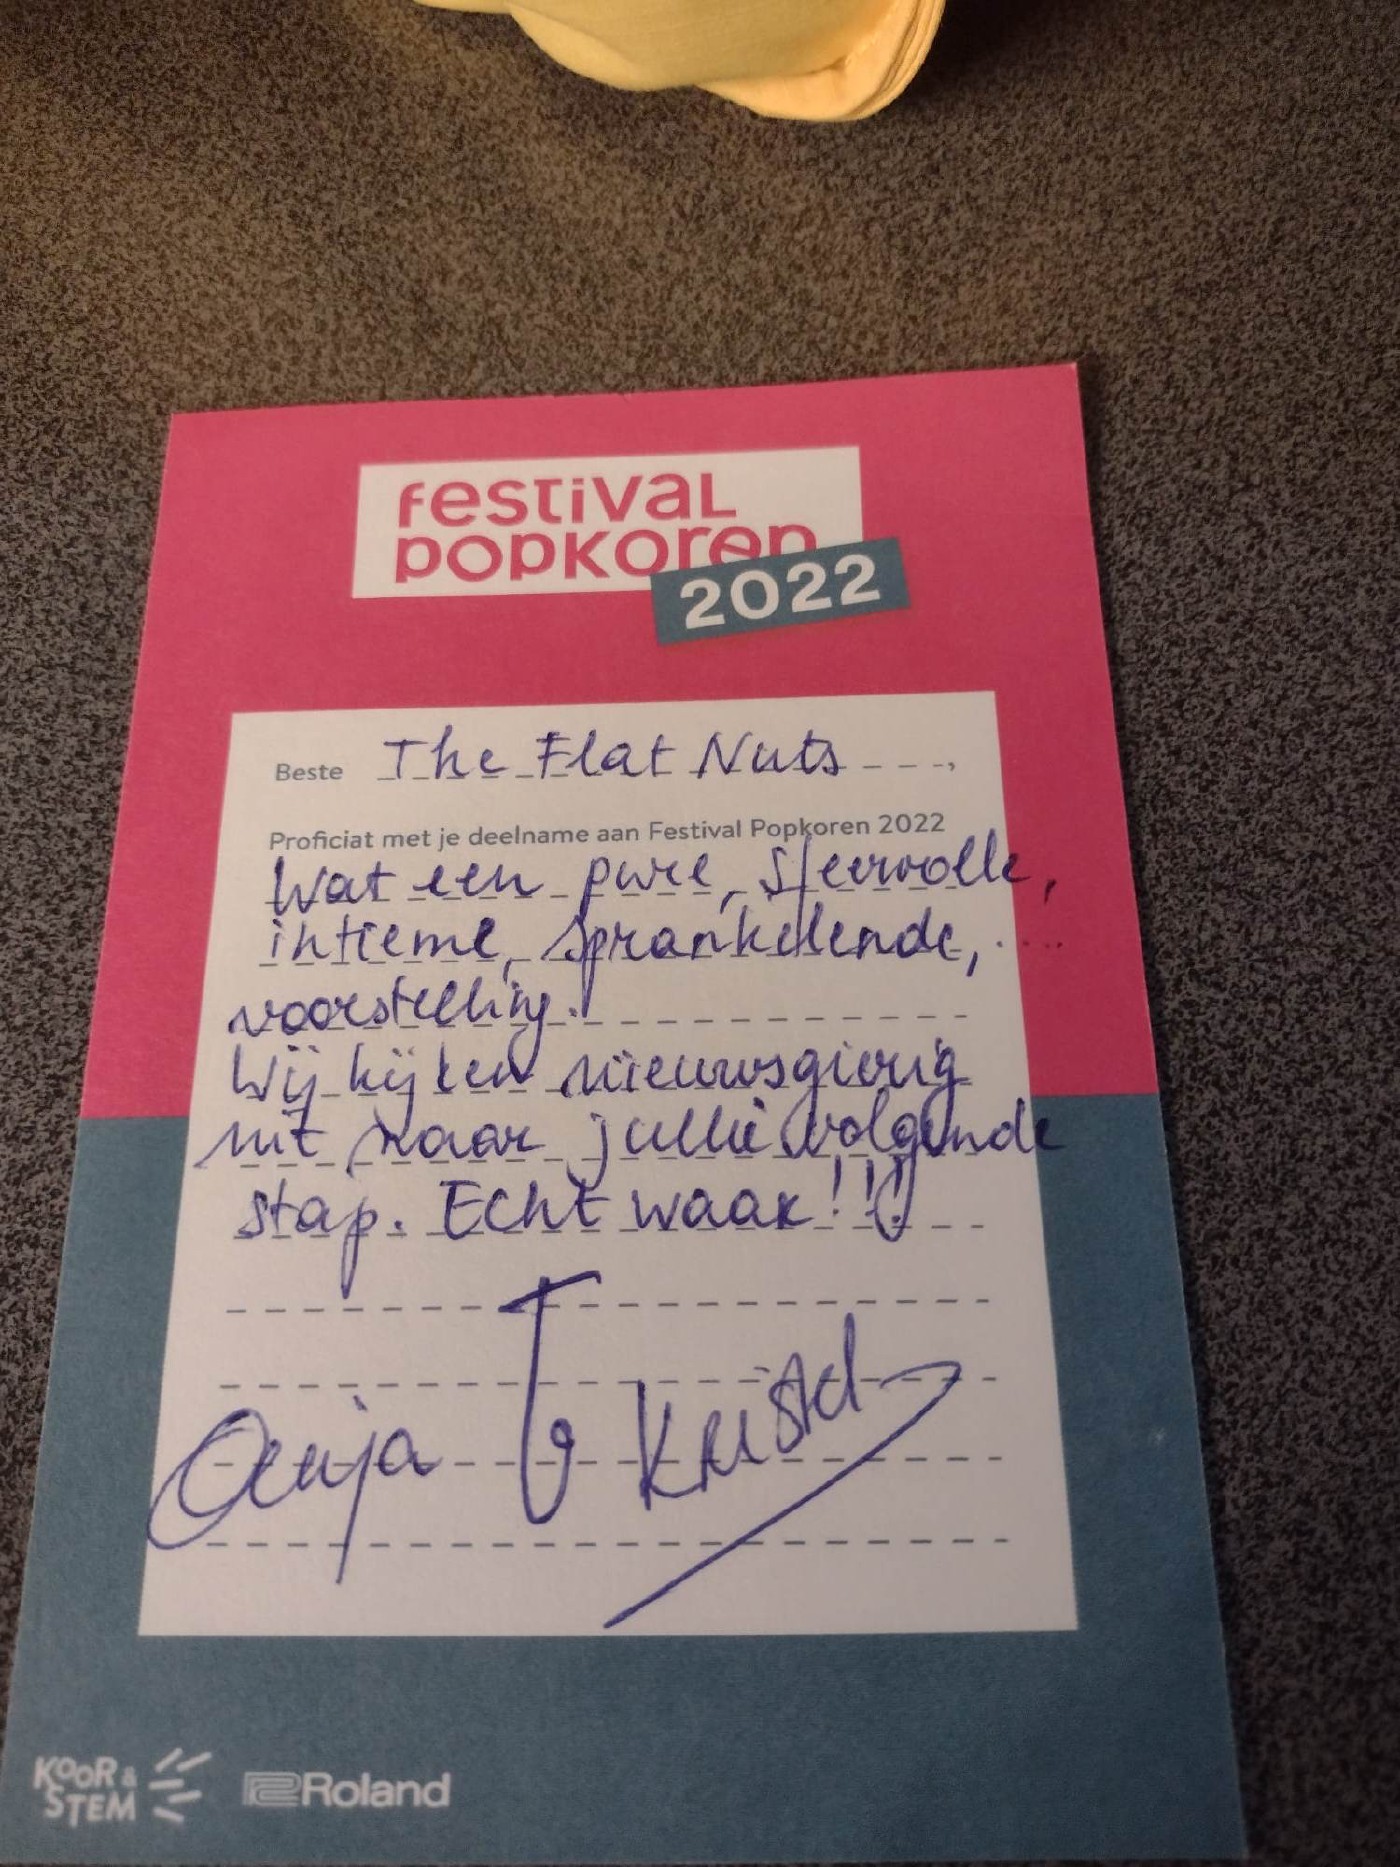 Festival
popkoren
2022
Beste The Flat Nuts,
Proficiat met je deelname aan Festival Popkoren 2022
Wat een pure, sfeervolle,
intieme, sprankelende, ...
voorstelling.
Wij kijken nieuwsgierig
uit naar jullie volgende
stap. Echt waar!!!
Anja Kristel
KOOR &
STEM
Roland